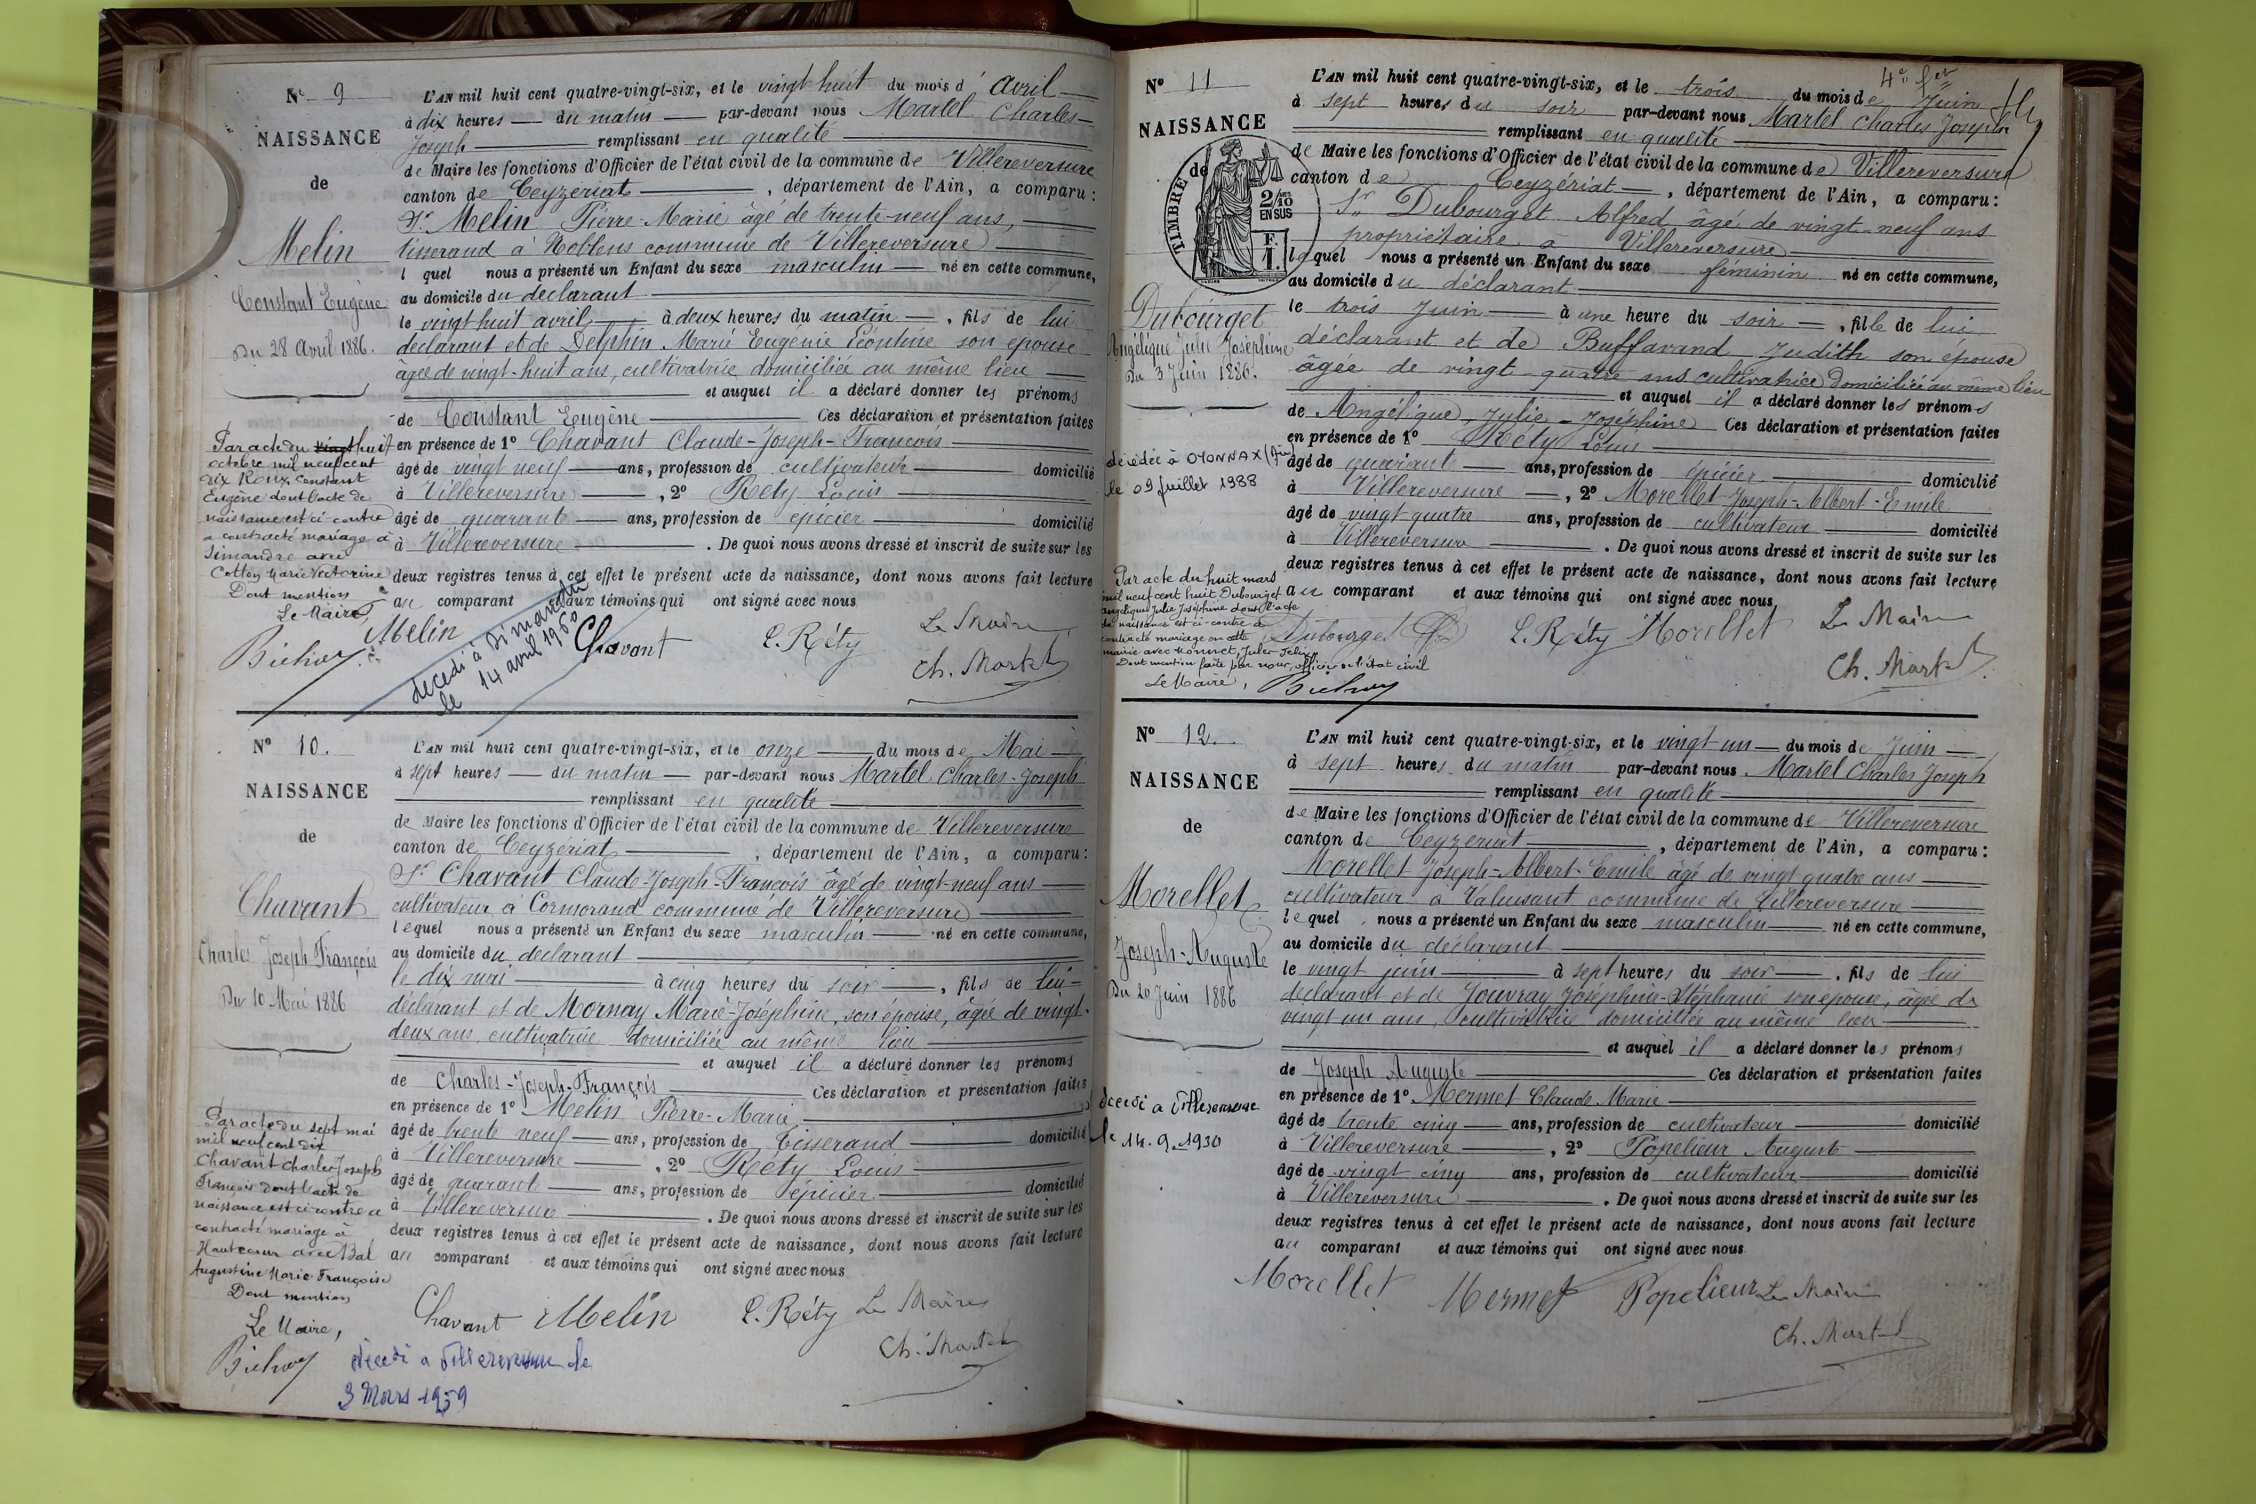 N° 9
NAISSANCE
de
Melin
Constant Eugène
Du 28 Avril 1886.
Par acte du vingt huit
octobre mil neuf cent
dix Constant
Eugène dont l'acte de
naissance est ci-contre
a contracté mariage à
Simandre avec
Cotton Marie Victorine
Dont mention
Le Maire,
L'AN mil huit cent quatre-vingt-six, et le vingt huit du mois d'avril
à dix heures du matin par-devant nous Martel Charles-
Joseph remplissant en qualité
de Maire les fonctions d'Officier de l'état civil de la commune de Villereversure
canton de Ceyzeriat, département de l'Ain, a comparu :
Sr Melin Pierre-Marie âgé de trente-neuf ans,
tisserand à Noblens commune de Villereversure
lequel nous a présenté un Enfant du sexe masculin né en cette commune,
au domicile du déclarant
le vingt huit avril à deux heures du matin, fils de lui
déclarant et de Delphin Marie Eugenie Léontine son épouse
agée de vingt-huit ans, cultivatrice domiciliée au même lieu
et auquel il a déclaré donner les prénoms
de Constant Eugène Ces déclaration et présentation faites
en présence de 1° Chavant Claude-Joseph-François
âgé de vingt neuf ans, profession de cultivateur domicilié
à Villereversure, 2° Réty Louis
âgé de quarante ans, profession de épicier domicilié
à Villereversure. De quoi nous avons dressé et inscrit de suite sur les
deux registres tenus à cet effet le présent acte de naissance, dont nous avons fait lecture
au comparant et aux témoins qui ont signé avec nous
Melin Chavant L. Réty Le Maire
Ch. Martel
décédé à Simandre
le 14 avril 1960
N° 10.
NAISSANCE
de
Chavant
Charles Joseph François
Du 10 Mai 1886
Par acte du sept mai
mil neuf cent dix
Chavant Charles Joseph
François dont l'acte de
naissance est ci contre a
contracté mariage à
Hautecour avec Bal
Augustine Marie Françoise
Dont mention
Le Maire,
L'AN mil huit cent quatre-vingt-six, et le onze du mois de Mai
à sept heures du matin par-devant nous Martel Charles-Joseph
remplissant en qualité
de Maire les fonctions d'Officier de l'état civil de la commune de Villereversure
canton de Ceyzeriat, département de l'Ain, a comparu :
Sr Chavant Claude-Joseph-François âgé de vingt-neuf ans
cultivateur à Cormorand commune de Villereversure
lequel nous a présenté un Enfant du sexe masculin né en cette commune,
au domicile du declarant
le dix mai à cinq heures du soir, fils de lui-
déclarant et de Mornay Marie-Joséphine, son épouse, âgée de vingt-
deux ans cultivatrice domiciliée au même lieu
et auquel il a déclaré donner les prénoms
de Charles-Joseph-François Ces déclaration et présentation faites
en présence de 1° Melin Pierre-Marie
âgé de trente neuf ans, profession de tisserand domicilié
à Villereversure, 2° Réty Louis
âgé de quarante ans, profession de épicier domicilié
à Villereversure. De quoi nous avons dressé et inscrit de suite sur les
deux registres tenus à cet effet le présent acte de naissance, dont nous avons fait lecture
au comparant et aux témoins qui ont signé avec nous
Chavant Melin L. Réty Le Maire
Ch. Martel
décédé a Villereversure le
3 Mars 1959
4e
N° 11
NAISSANCE
de
TIMBRE
2/10
EN SUS
F.
1.
Dubourget
Angélique Julie Joséphine
Du 3 Juin 1886.
décédée à OYONNAX (Ain)
le 09 juillet 1988
Par acte du huit mars
mil neuf cent huit Dubourget
Angélique Julie Joséphine dont l'acte
de naissance est ci-contre a
contracté mariage en cette
mairie avec Monnet Jules Félix
Dont mention faite par nous, officier de l'état civil
Le Maire,
L'AN mil huit cent quatre-vingt-six, et le trois du mois de Juin
à sept heures du soir par-devant nous Martel Charles Joseph
remplissant en qualité
de Maire les fonctions d'Officier de l'état civil de la commune de Villereversure
canton de Ceyzériat, département de l'Ain, a comparu :
Sr Dubourget Alfred âgé de vingt-neuf ans
propriétaire à Villereversure
lequel nous a présenté un Enfant du sexe féminin né en cette commune,
au domicile du déclarant
le trois Juin à une heure du soir, fille de lui
déclarant et de Buffavand Judith son épouse
âgée de vingt quatre ans cultivatrice domiciliée au même lieu
et auquel il a déclaré donner les prénoms
de Angélique, Julie-Joséphine Ces déclaration et présentation faites
en présence de 1° Réty Louis
âgé de quarante ans, profession de épicier domicilié
à Villereversure, 2° Morellet Joseph-Albert-Emile
âgé de vingt quatre ans, profession de cultivateur domicilié
à Villereversure. De quoi nous avons dressé et inscrit de suite sur les
deux registres tenus à cet effet le présent acte de naissance, dont nous avons fait lecture
au comparant et aux témoins qui ont signé avec nous
Dubourget L. Réty Morellet Le Maire
Ch. Martel
N° 12.
NAISSANCE
de
Morellet
Joseph-Auguste
Du 20 Juin 1886
décédé a Villereversure
le 14.9.1930
L'AN mil huit cent quatre-vingt-six, et le vingt-un du mois de Juin
à sept heures du matin par-devant nous Martel Charles Joseph
remplissant en qualité
de Maire les fonctions d'Officier de l'état civil de la commune de Villereversure
canton de Ceyzeriat, département de l'Ain, a comparu :
Morellet Joseph-Albert-Emile âgé de vingt quatre ans
cultivateur à Valuisant commune de Villereversure
lequel nous a présenté un Enfant du sexe masculin né en cette commune,
au domicile du déclarant
le vingt juin à sept heures du soir, fils de lui
déclarant et de Jouvray Joséphine-Stéphanie son épouse, âgée de
vingt un ans, cultivatrice domiciliée au même lieu
et auquel il a déclaré donner les prénoms
de Joseph Auguste Ces déclaration et présentation faites
en présence de 1° Mermet Claude Marie
âgé de trente cinq ans, profession de cultivateur domicilié
à Villereversure, 2° Popelieur Auguste
âgé de vingt cinq ans, profession de cultivateur domicilié
à Villereversure. De quoi nous avons dressé et inscrit de suite sur les
deux registres tenus à cet effet le présent acte de naissance, dont nous avons fait lecture
au comparant et aux témoins qui ont signé avec nous
Morellet Mermet Popelieur Le Maire
Ch. Martel